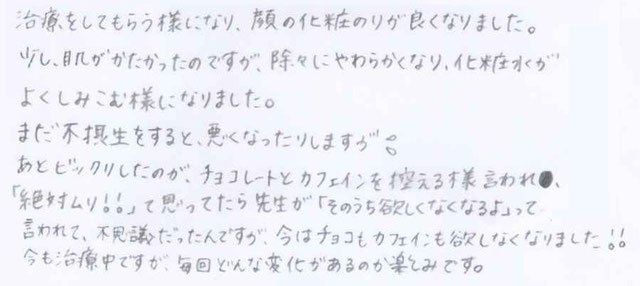 治療をしてもらう様になり、顔の化粧のりが良くなりました。
少し、肌がかたかったのですが、除々にやわらかくなり、化粧水が
よくしみこむ様になりました。
まだ不摂生をすると、悪くなったりしますが。
あとビックリしたのが、チョコレートとカフェインを控える様言われ、
「絶対ムリ!!」て思ってたら先生が「そのうち欲しくなくなるよ」って
言われて、不思議だったんですが、今はチョコもカフェインも欲しなくなりました!!
今も治療中ですが、毎回どんな変化があるのか楽しみです。